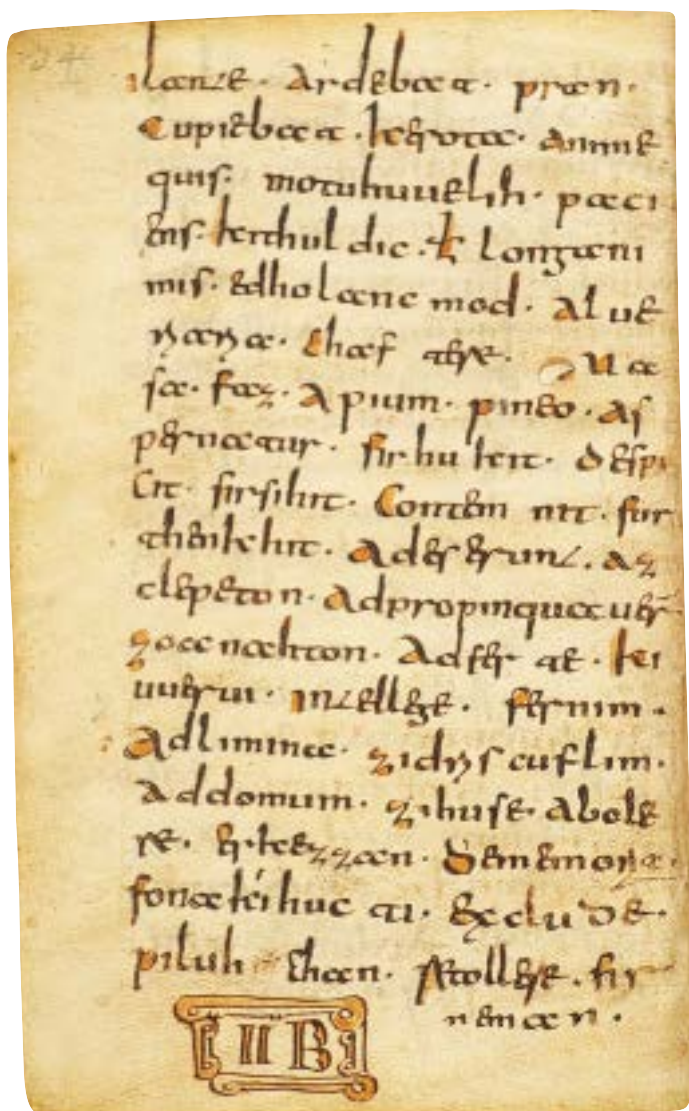 ilanze. Ardebat. pran.
Cupiebat. kerota. Anime
quis. motuhuuelih. paci
ens. kethuldic. ł longani
mis. edholanc mod. Alue
chaf Ua
sa. faz. Apium. pineo. As
pernatur. firhukeit. Despi
cit. firsihit. Contem nit. fur
Adeserunt. az
clepeton. Adpropinquauer
zoanahton. Adferte. kei
intellege. fernim.
Adlimina. zidriscuflim.
Addomum. zihuse. Abole
re. erkezzan. Dememoria.
fonakihucti. Exclude.
piluh chan. Attollere. fir
neman.
II B